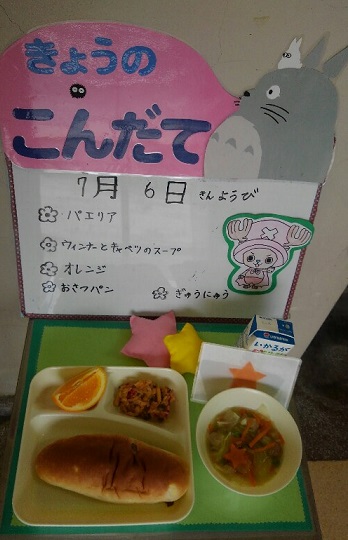 きょうの
こんだて
7月 6日 きんようび
パエリア
ウィンナーとキャベツのスープ
オレンジ
おさつパン ぎゅうにゅう
いかるが